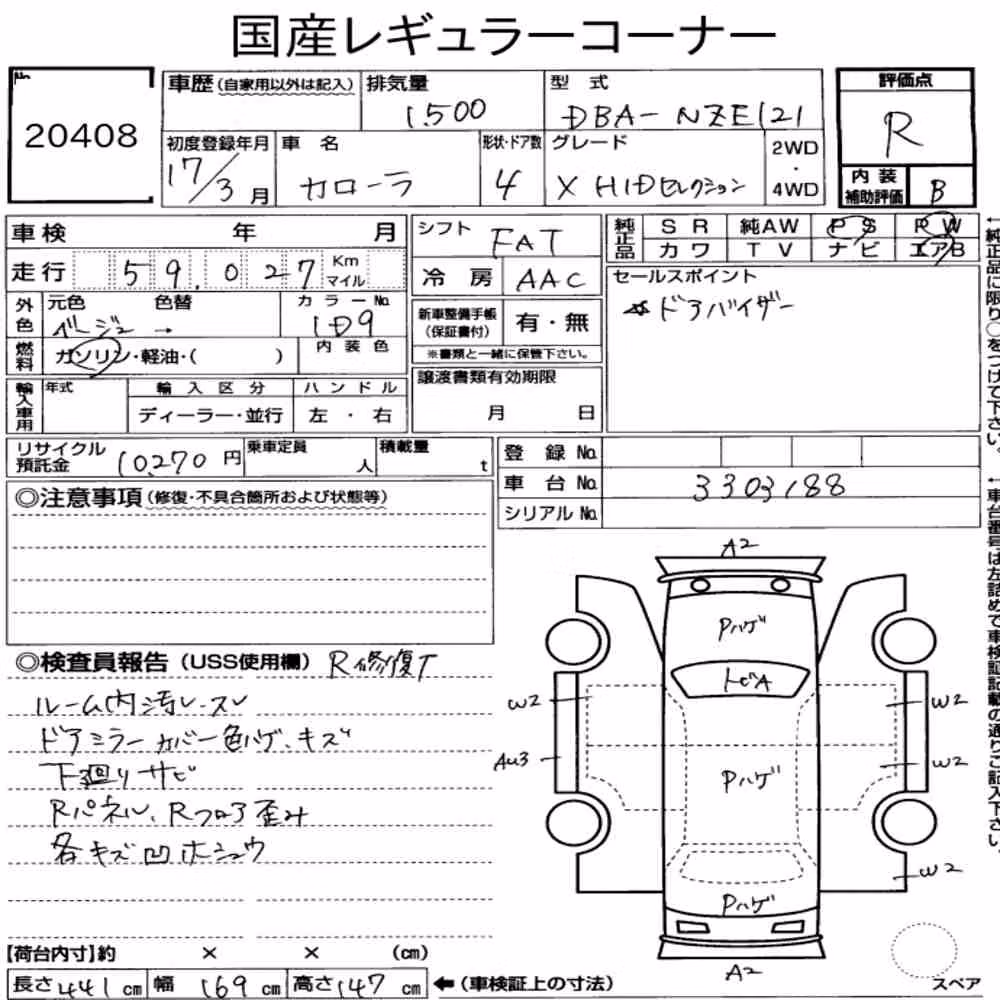 国産レギュラーコーナー
No. 20408
車歴(自家用以外は記入) 排気量 1500 型 式 DBA-NZE121
評価点 R
初度登録年月 17/3月 車 名 カローラ 形状・ドア数 4 グレード X HIDセレクション 2WD・4WD
内装補助評価 B
車検 年 月
走行 59,027 Km マイル
外色 元色 色替 ベージュ → カラーNo. 1D9
燃料 ガソリン・軽油・( ) 内装色
輸入車用 年式 輸入区分 ハンドル
ディーラー・並行 左・右
シフト FAT
冷房 AAC
新車整備手帳(保証書付) 有・無
※書類と一緒に保管下さい。
譲渡書類有効期限
月 日
純正品 SR 純AW PS PW
カワ TV ナビ エアB
セールスポイント
ドアバイザー
リサイクル預託金 10,270円 乗車定員 人 積載量 t
登録No.
車台No. 3303188
シリアルNo.
◎注意事項(修復・不具合箇所および状態等)
◎検査員報告(USS使用欄) R修復T
ルーム内汚レ・スレ
ドアミラーカバー色ハゲ、キズ
下廻りサビ
Rパネル、Rフロア歪み
各キズ凹ホシュウ
【荷台内寸】約 × × (cm)
長さ441cm 幅169cm 高さ147cm ←(車検証上の寸法)
A2
Pハゲ
トビA
W2 W2
AU3 Pハゲ W2
W2
Pハゲ
A2
スペア
←純正品に限り○をつけて下さい。
←車台番号は左詰めで車検証記載の通りご記入下さい。